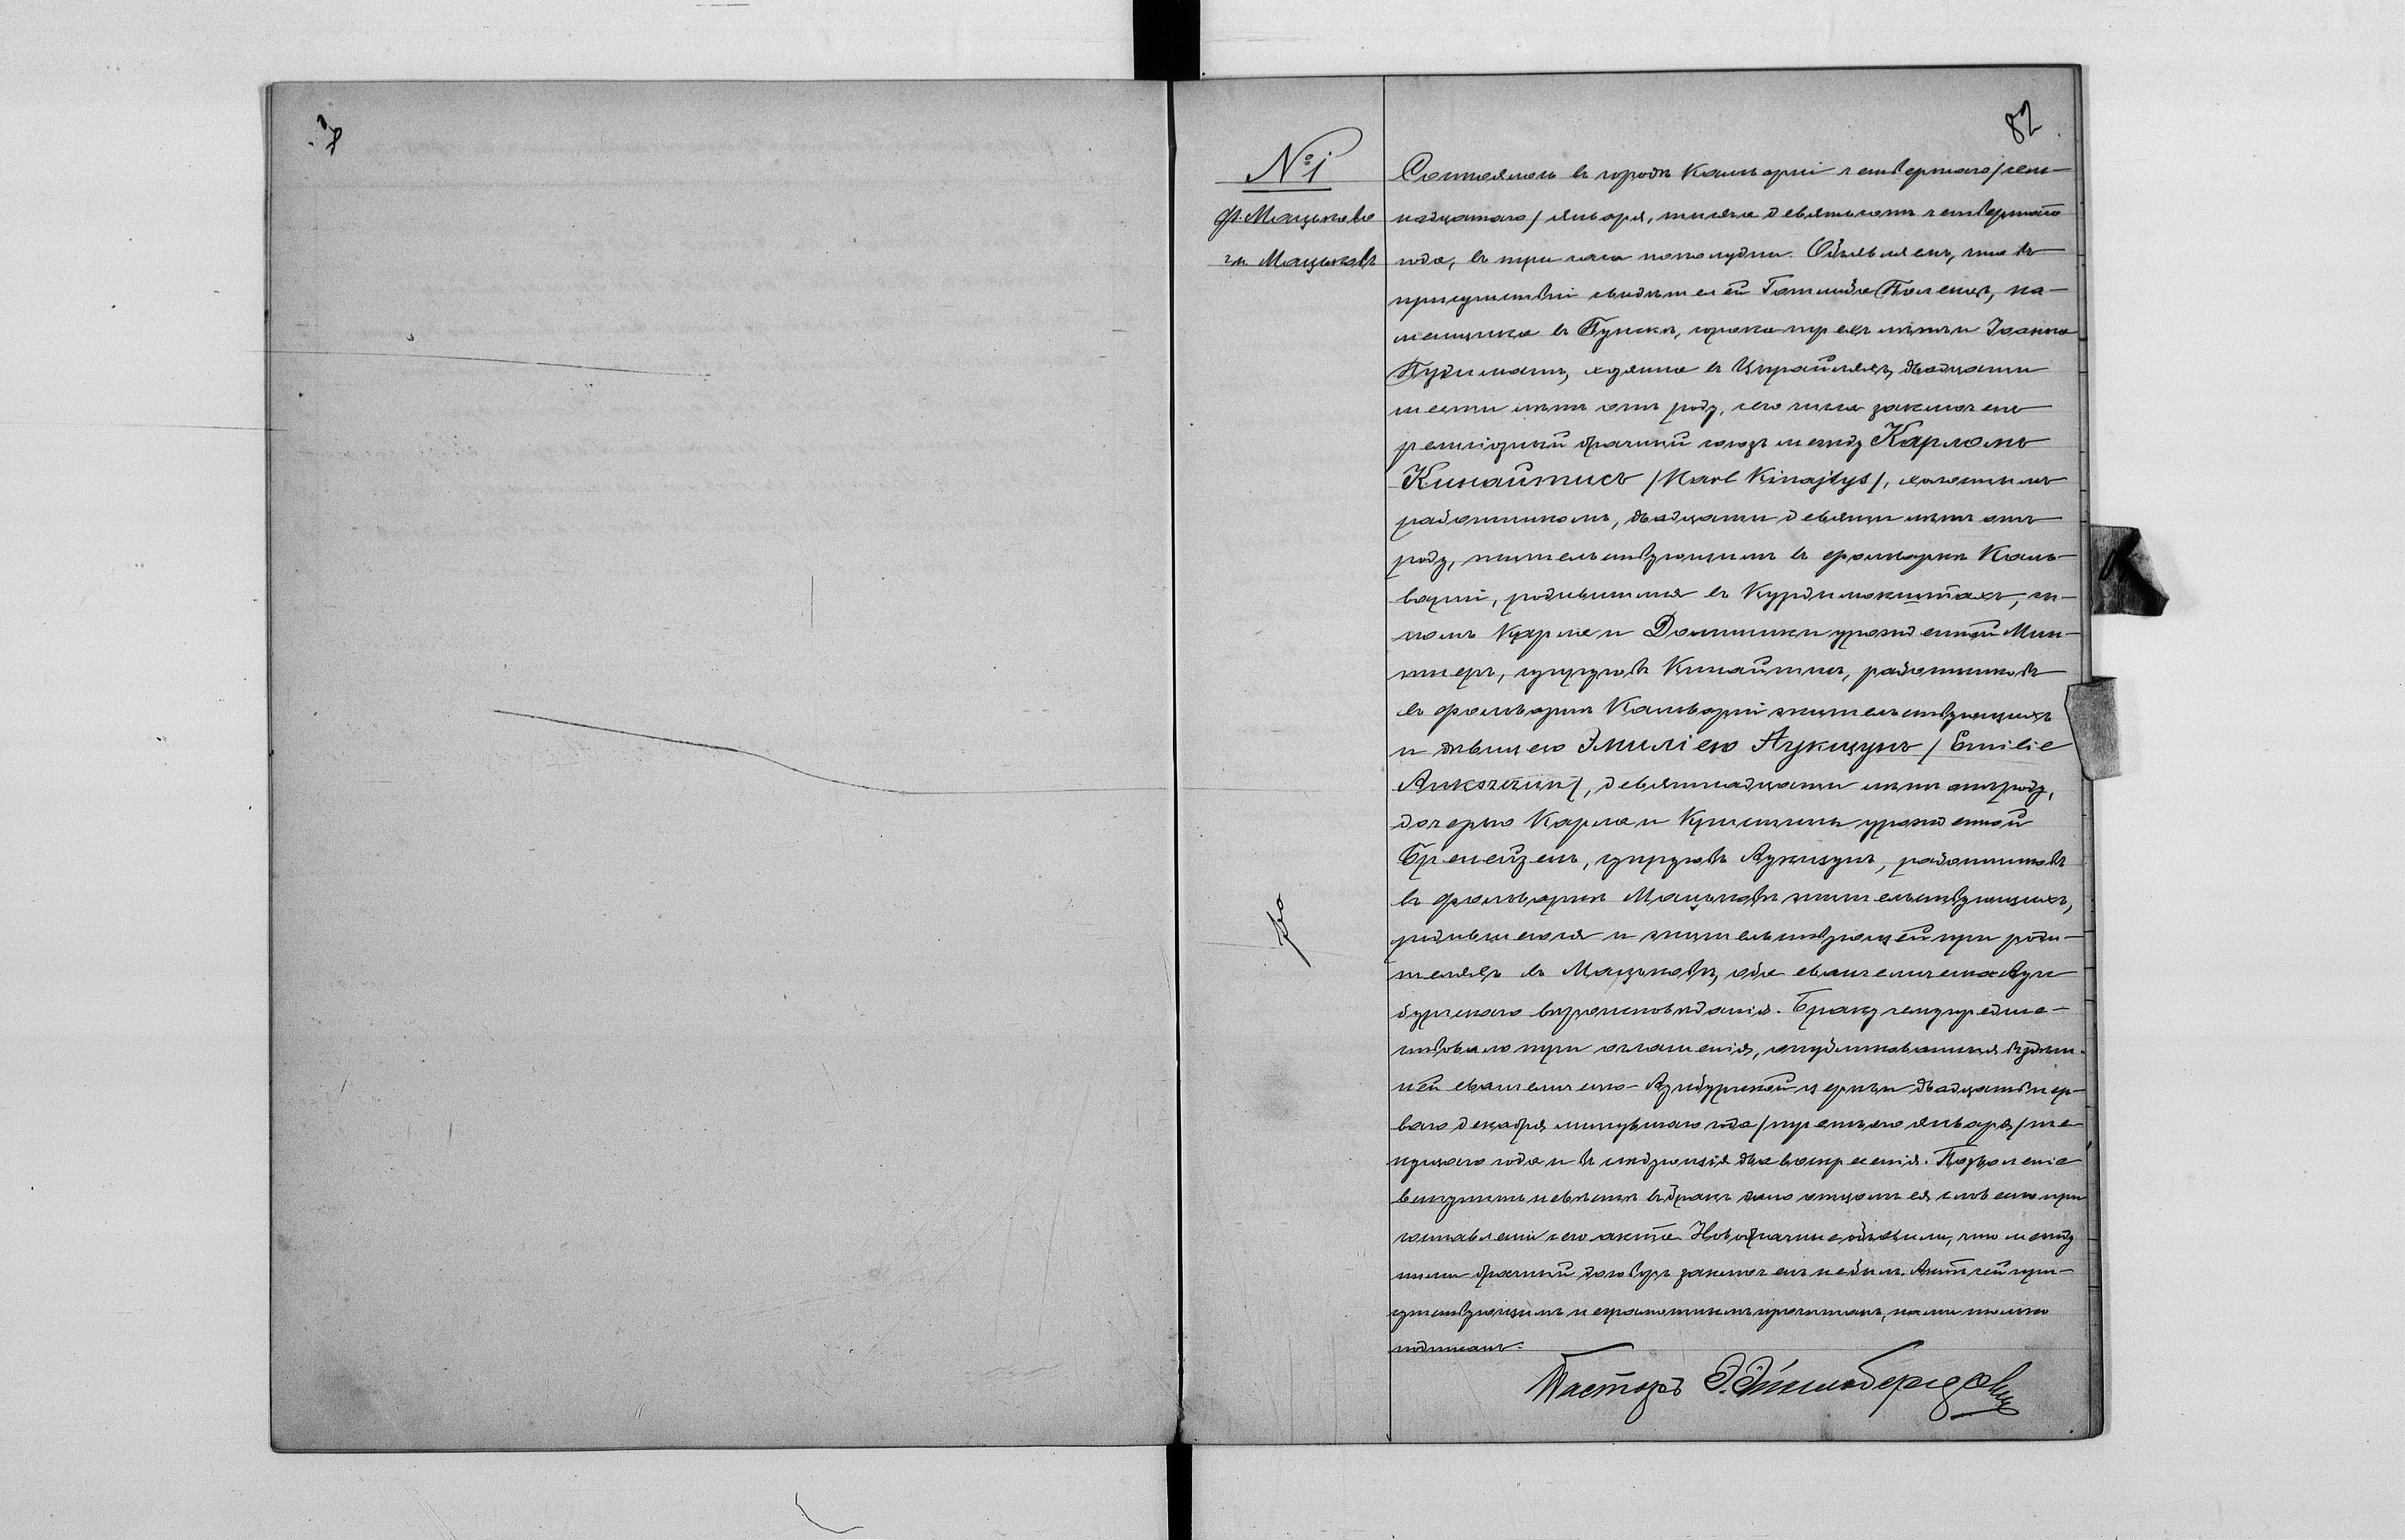 82
№ 1
Ф. Мацьково
гм. Мацьковъ
Состоялось въ городѣ Кальваріи четвертаго /сем-
надцатаго/ января, тысяча девятьсотъ четвертаго
года, въ три часа пополудни. Объявляемъ, что въ
присутствіи свидѣтелей Готлиба Поленца, ка-
менщика въ Пунскѣ, сорока трехъ лѣтъ и Іоанна
хозяина въ двадцати
шести лѣтъ отъ роду, сего числа заключенъ
религіозный брачный союзъ между Карломъ
Кинайтисъ /Karl Kinajtys/, холостымъ
работникомъ, двадцати девяти лѣтъ отъ
роду, жительствующимъ въ фольваркѣ Каль-
варіи, родившимся въ Курдимокштахъ, сы-
номъ Карла и Доминики урожденной Мин-
супруговъ Кинайтисъ, работниковъ
въ фольваркѣ Кальваріи жительствующихъ
и дѣвицею Эмиліею Аукщунъ /Emilie
Aukszzun/, девятнадцати лѣтъ отъ роду,
дочерью Карла и Кристины урожденной
супруговъ Аукщунъ, работниковъ
въ фольваркѣ Мацьковѣ жительствующихъ,
родившеюся и жительствующей при роди-
теляхъ въ Мацьковѣ, оба евангелическо Аугс-
бургскаго вѣроисповѣданія. Браку сему предше-
ствовало три оглашенія, опубликованныя въ здѣш-
ней евангелическо-Аугсбургской церкви двадцать пер-
ваго декабря минувшаго года /третьяго января/ те-
кущаго года и въ слѣдующія два воскресенія. Позволеніе
вступить невѣстѣ въ бракъ дано отцомъ ея словесно при
составленіи сего акта. Новобрачные объявили, что между
ними брачный договоръ заключенъ не былъ. Актъ сей при-
сутствующимъ неграмотнымъ прочитанъ, нами только
подписанъ.
Пасторъ